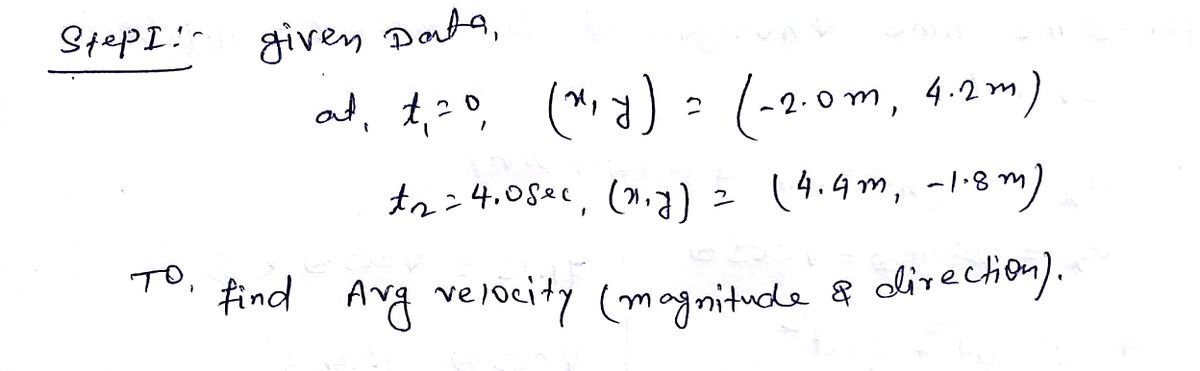 StepI:- given Data,
at, t₁=0, (x, y) = (-2.0m, 4.2m)
t₂=4.0sec, (x,y) = (4.4m, -1.8m)
TO, find Avg velocity (magnitude & direction).